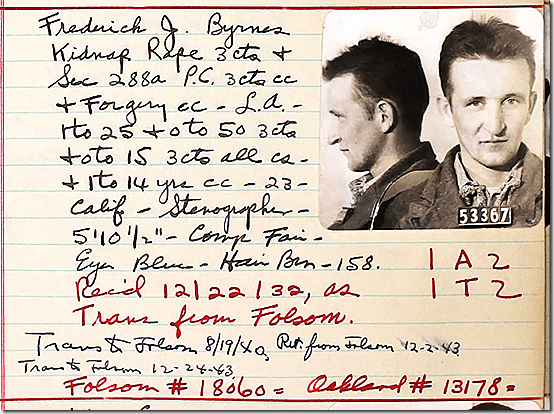 Frederick J. Byrnes
Kidnap Rape 3 cts +
Sec 288a P.C. 3 cts cc
+ Forgery cc - L.A. -
1 to 25 + 0 to 50 3 cts
+ 0 to 15 3 cts all cs -
+ 1 to 14 yrs cc - 23 -
Calif - Stenographer -
5'10 1/2" - Comp Fair -
Eyes Blue - Hair Brn - 158.
Rec'd 12/22/32, as
Trans from Folsom.
1 A 2
1 T 2
53367
Trans to Folsom 8/19/40, Ret. from Folsom 12-2-43
Trans to Folsom 12-24-43,
Folsom # 18060 = Oakland # 13178 =